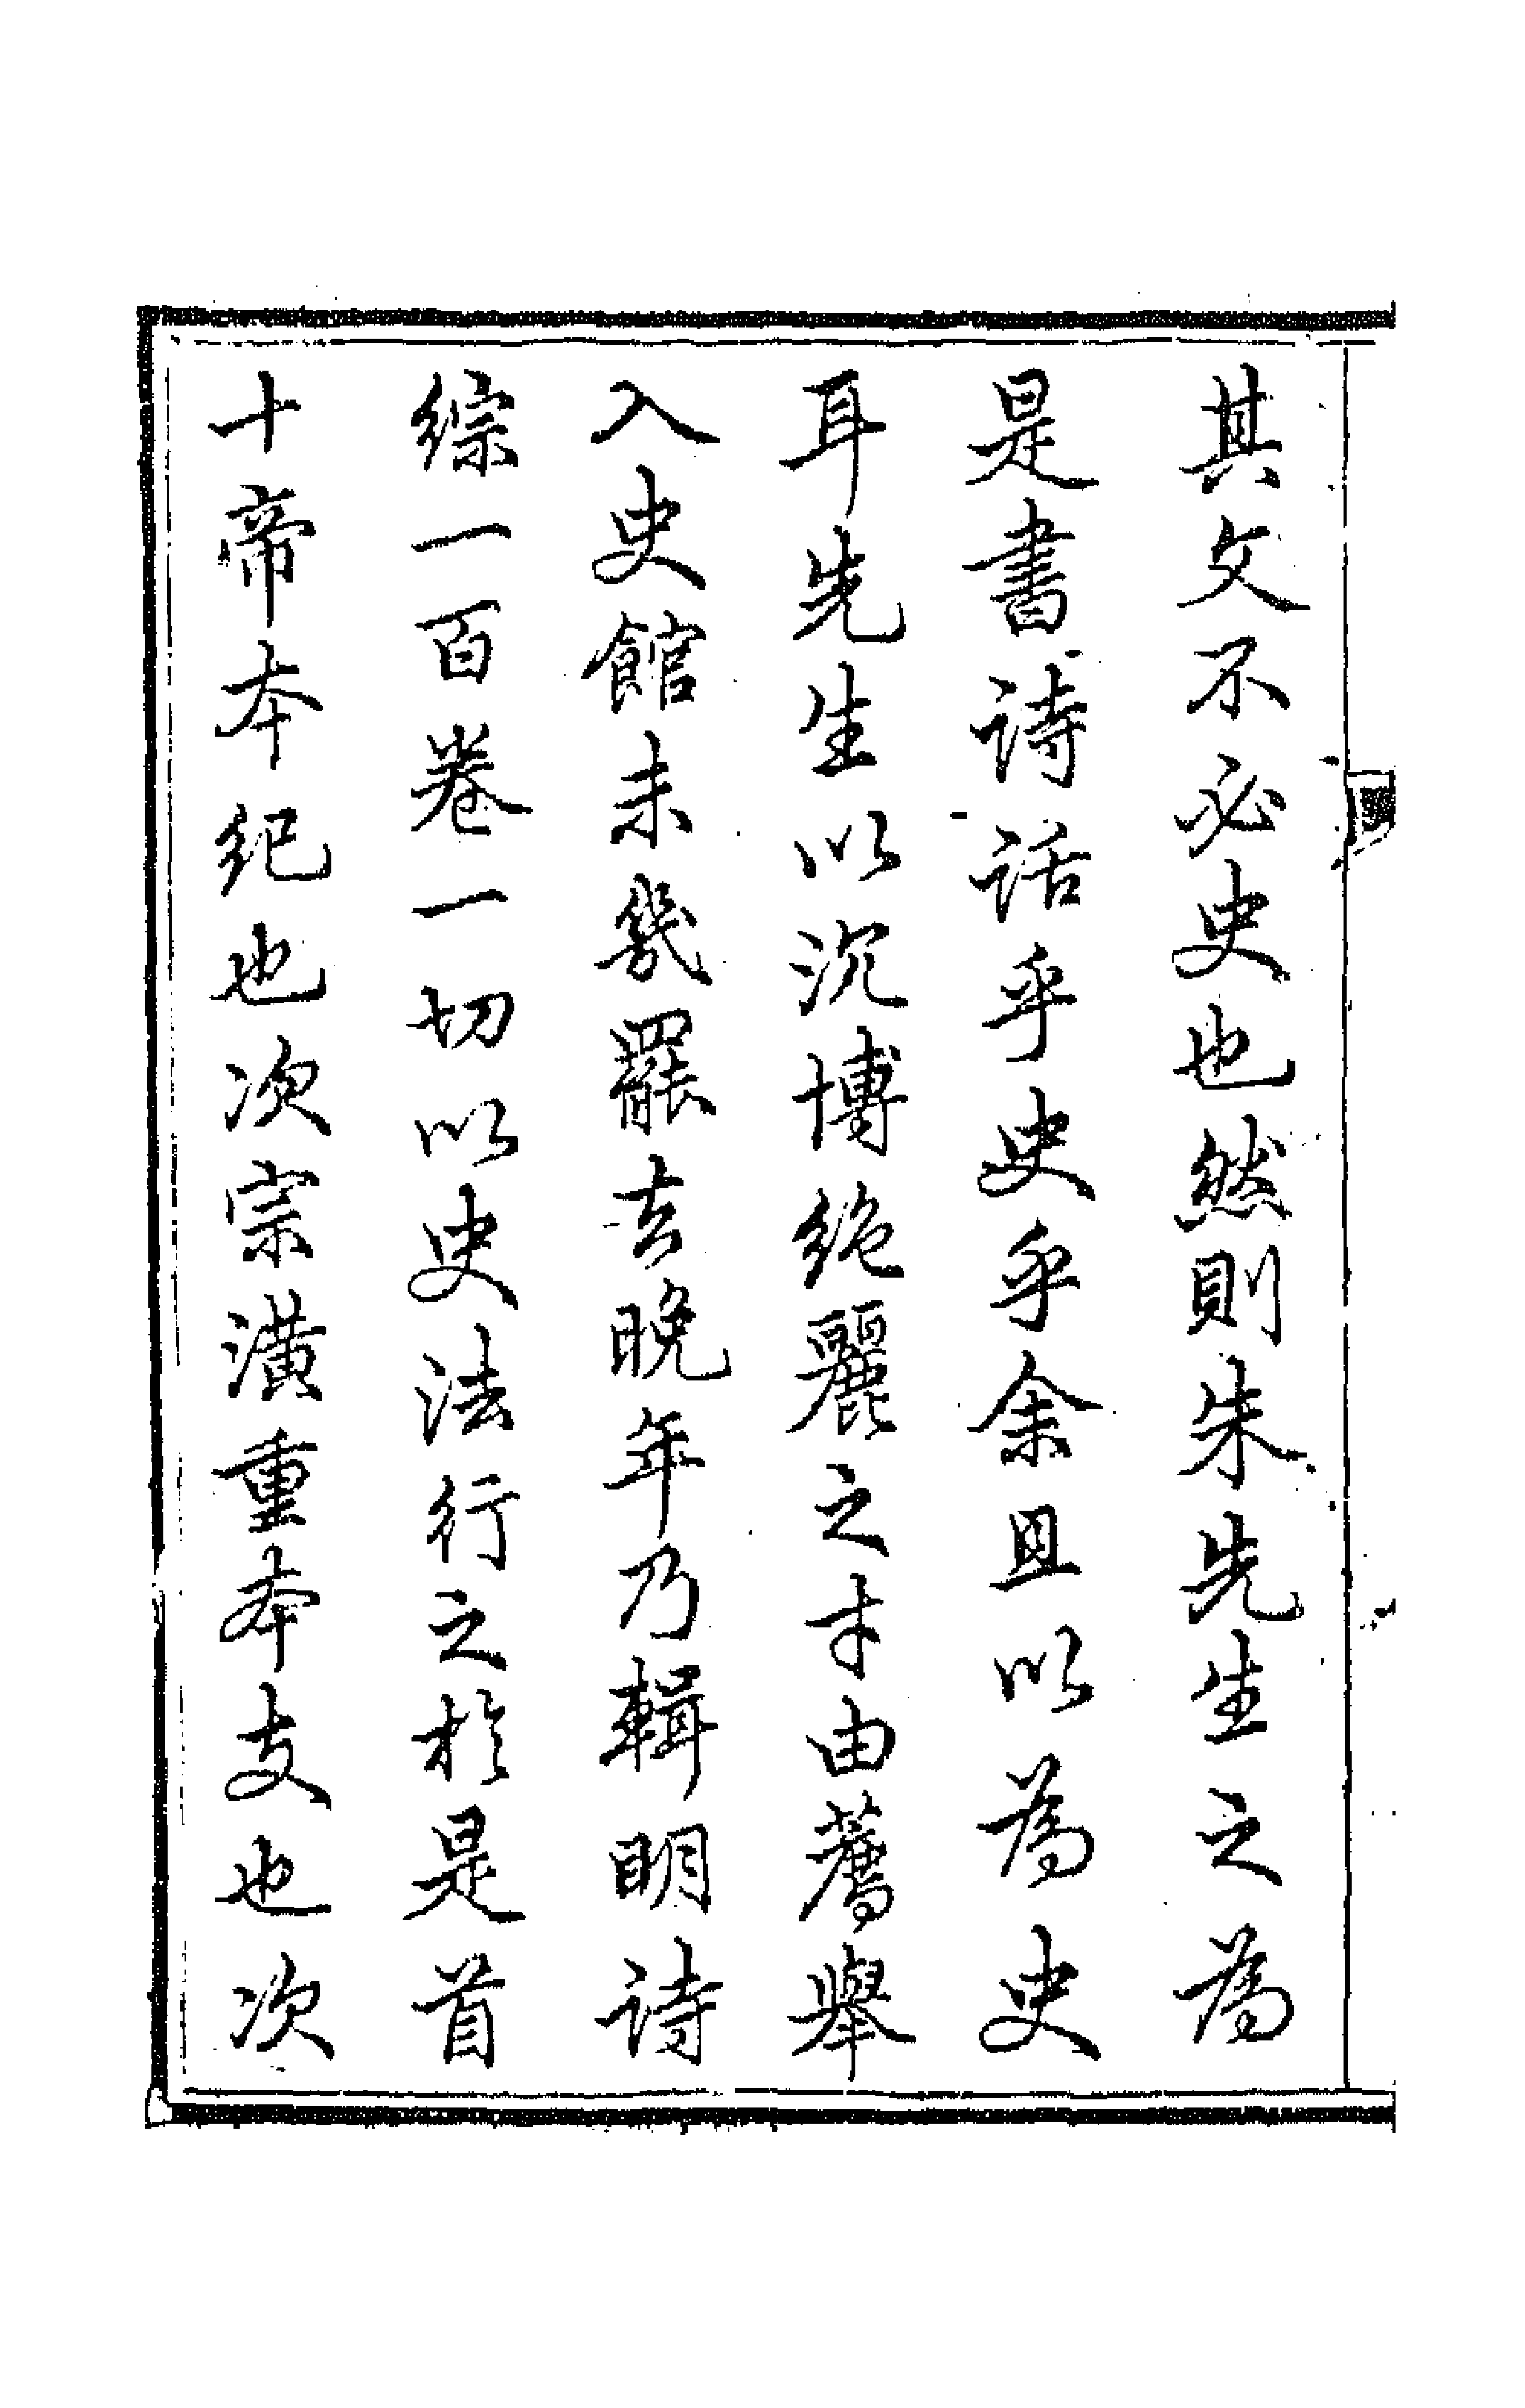 其文不必史也然則朱先生之為
是書詩話乎史乎余且以為史
耳先生以沉博絶麗之才由薦舉
入史館未幾罷去晚年乃輯明詩
綜一百卷一切以史法行之於是首
十帝本紀也次宗潢重本支也次